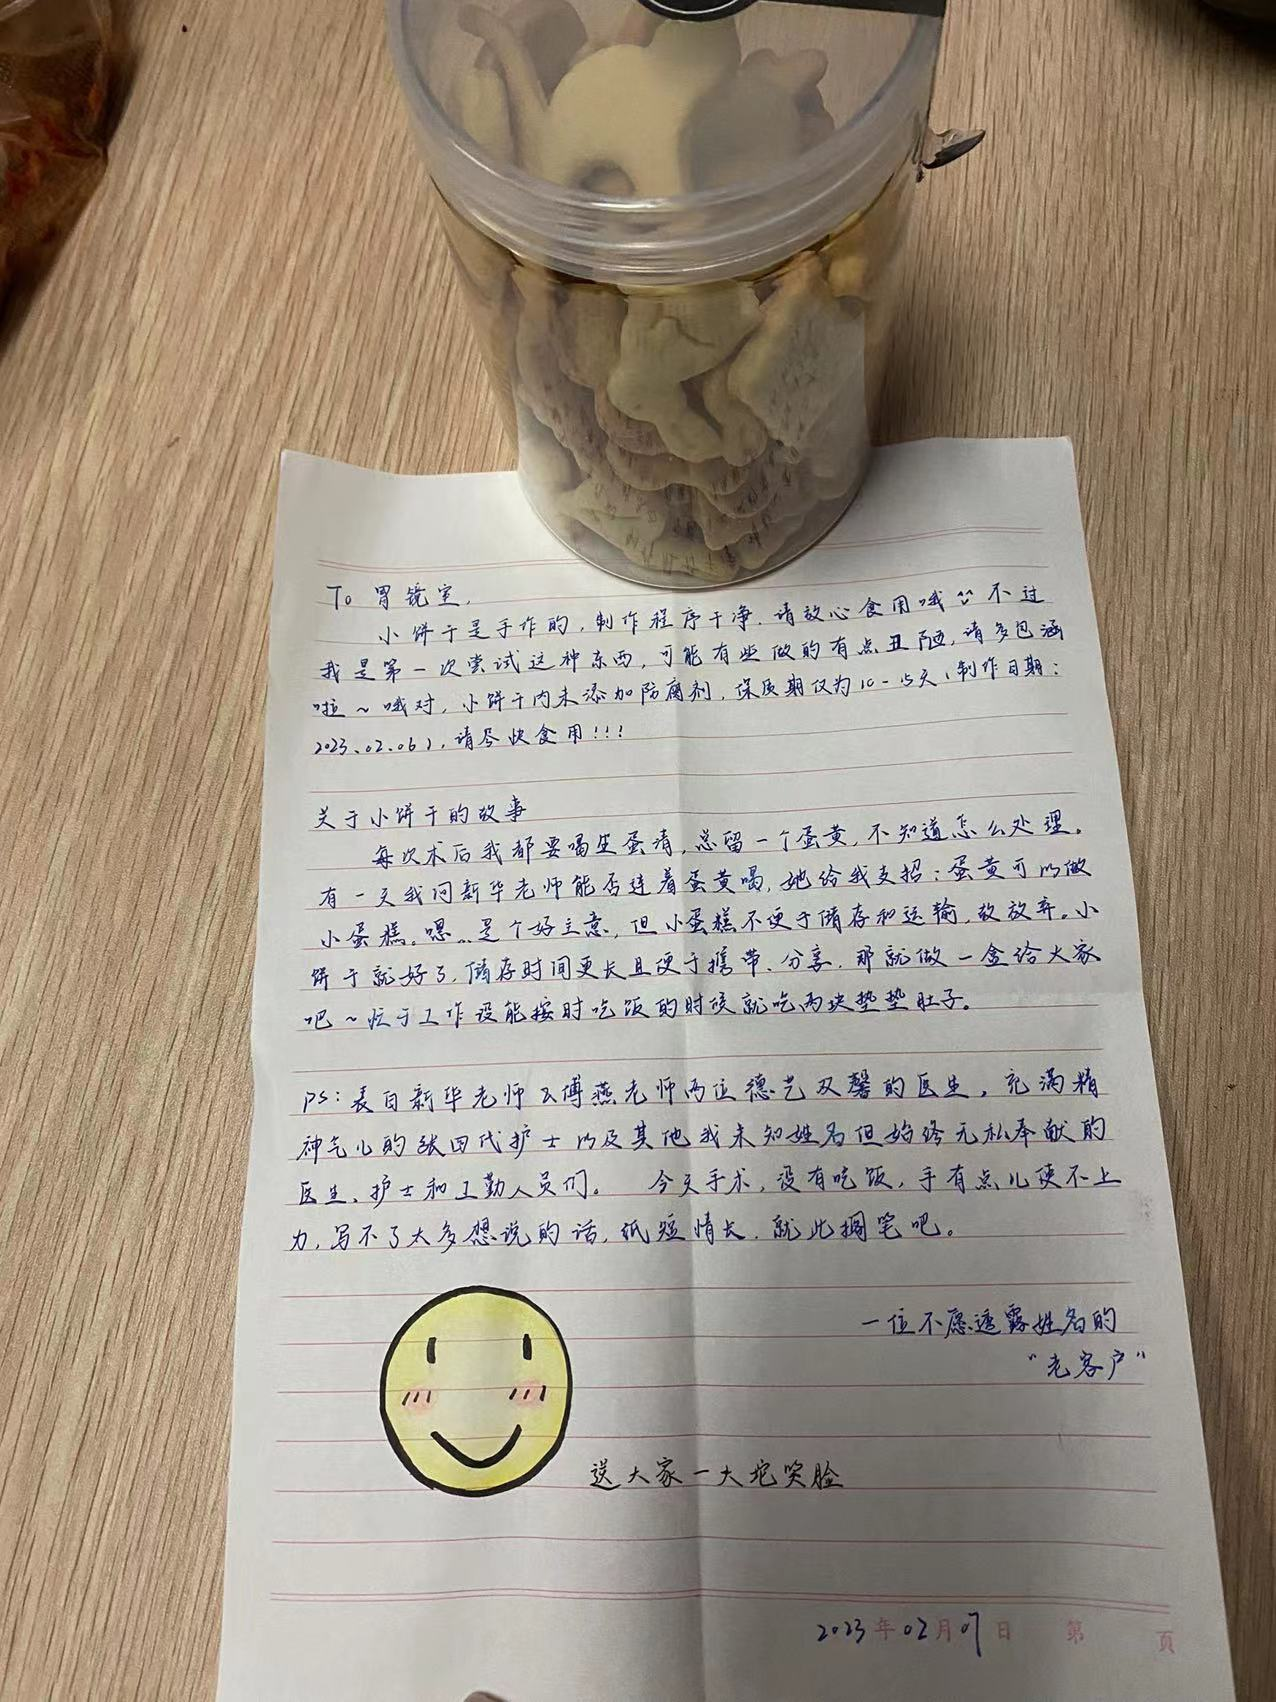 To 胃镜室,
小饼干是手作的,制作程序干净,请放心食用哦^^ 不过
我是第一次尝试这种东西,可能有些做的有点丑陋,请多包涵
啦~哦对,小饼干内未添加防腐剂,保质期仅为10-15天(制作日期:
2023.02.06),请尽快食用!!!
关于小饼干的故事
每次术后我都要喝生蛋清,总留一个蛋黄,不知道怎么处理。
有一天我问新华老师能否连着蛋黄喝,她给我支招:蛋黄可以做
小蛋糕。嗯…是个好主意,但小蛋糕不便于储存和运输,故放弃。小
饼干就好了,储存时间更长且便于携带、分享,那就做一盒给大家
吧~忙于工作没能按时吃饭的时候就吃两块垫垫肚子。
PS:表白新华老师及傅燕老师两位德艺双馨的医生,充满精
神气儿的张四代护士以及其他我未知姓名但始终无私奉献的
医生、护士和工勤人员们。 今天手术,没有吃饭,手有点儿使不上
力,写不了太多想说的话,纸短情长,就此搁笔吧。
一位不愿透露姓名的
“老客户”
送大家一大坨笑脸
2023年02月07日 第 页